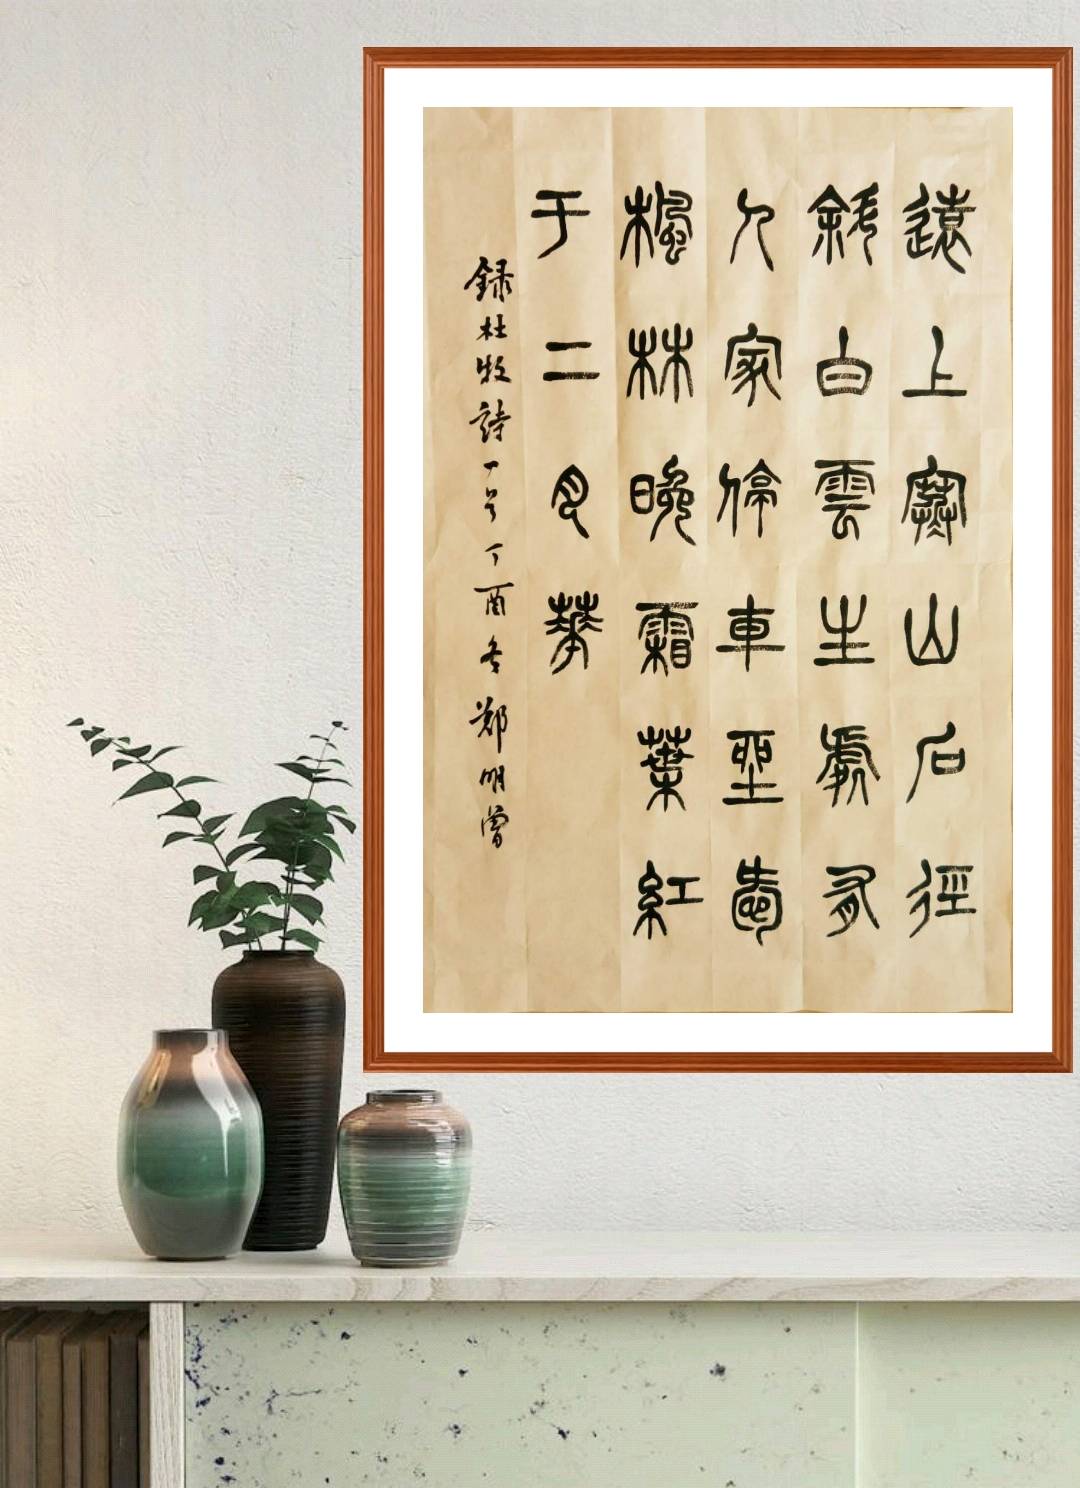 遠上寒山石徑
斜白雲生處有
人家停車坐愛
楓林晚霜葉紅
于二月華
録杜牧詩一首丁酉冬鄭明曾